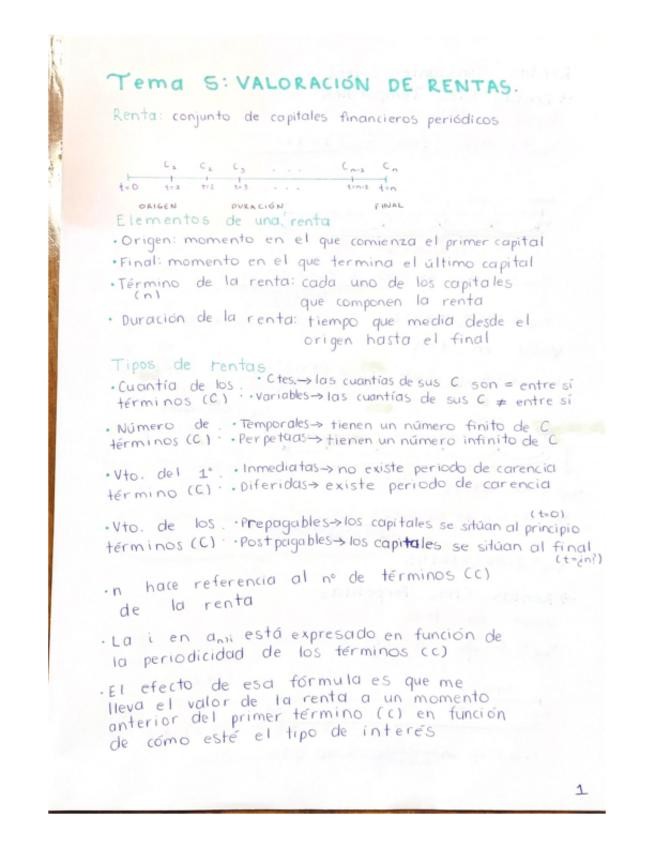 Tema 5: VALORACIÓN DE RENTAS.
Renta: conjunto de capitales financieros periódicos
C1 C2 C3 . . . Cn-1 Cn
t=0 t=1 t=2 t=3 . . . t=n-1 t=n
ORIGEN DURACIÓN FINAL
Elementos de una renta
· Origen: momento en el que comienza el primer capital
· Final: momento en el que termina el último capital
· Término de la renta: cada uno de los capitales
(n) que componen la renta
· Duración de la renta: tiempo que media desde el
origen hasta el final
Tipos de rentas
· Cuantía de los · Ctes.→ las cuantías de sus C son = entre sí
términos (C) · Variables→ las cuantías de sus C ≠ entre sí
· Número de · Temporales→ tienen un número finito de C
términos (C) · Perpetuas→ tienen un número infinito de C
· Vto. del 1º · Inmediatas→ no existe periodo de carencia
término (C) · Diferidas→ existe periodo de carencia
(t=0)
· Vto. de los · Prepagables→ los capitales se sitúan al principio
términos (C) · Postpagables→ los capitales se sitúan al final
(t=¿n?)
· n hace referencia al nº de términos (C)
de la renta
· La i en an¬i está expresado en función de
la periodicidad de los términos (C)
· El efecto de esa fórmula es que me
lleva el valor de la renta a un momento
anterior del primer término (C) en función
de cómo esté el tipo de interés
1